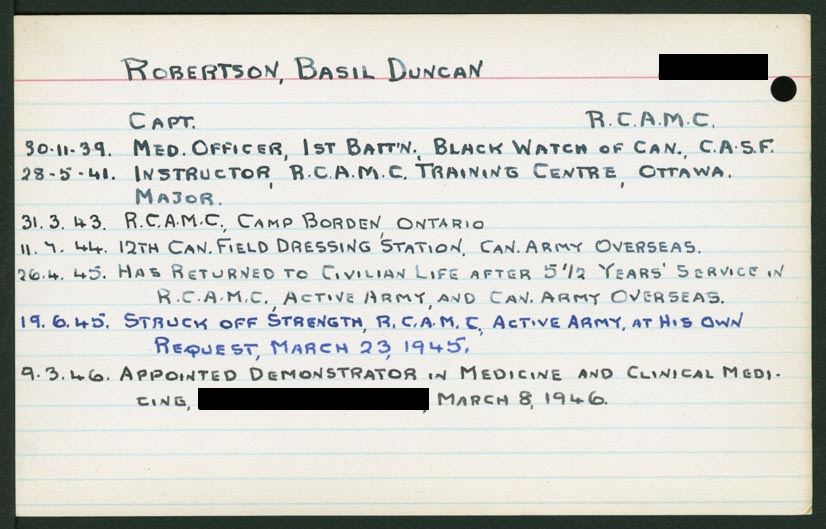 ROBERTSON, BASIL DUNCAN
CAPT. R.C.A.M.C.
30.11.39. MED. OFFICER, 1ST BATT'N., BLACK WATCH OF CAN., C.A.S.F.
28.5.41. INSTRUCTOR, R.C.A.M.C. TRAINING CENTRE, OTTAWA.
MAJOR.
31.3.43. R.C.A.M.C., CAMP BORDEN, ONTARIO
11.7.44. 12TH CAN. FIELD DRESSING STATION, CAN. ARMY OVERSEAS.
26.4.45. HAS RETURNED TO CIVILIAN LIFE AFTER 5 1/2 YEARS' SERVICE IN
R.C.A.M.C., ACTIVE ARMY, AND CAN. ARMY OVERSEAS.
19.6.45. STRUCK OFF STRENGTH, R.C.A.M.C, ACTIVE ARMY, AT HIS OWN
REQUEST, MARCH 23, 1945.
9.3.46. APPOINTED DEMONSTRATOR IN MEDICINE AND CLINICAL MEDI-
CINE, , MARCH 8, 1946.